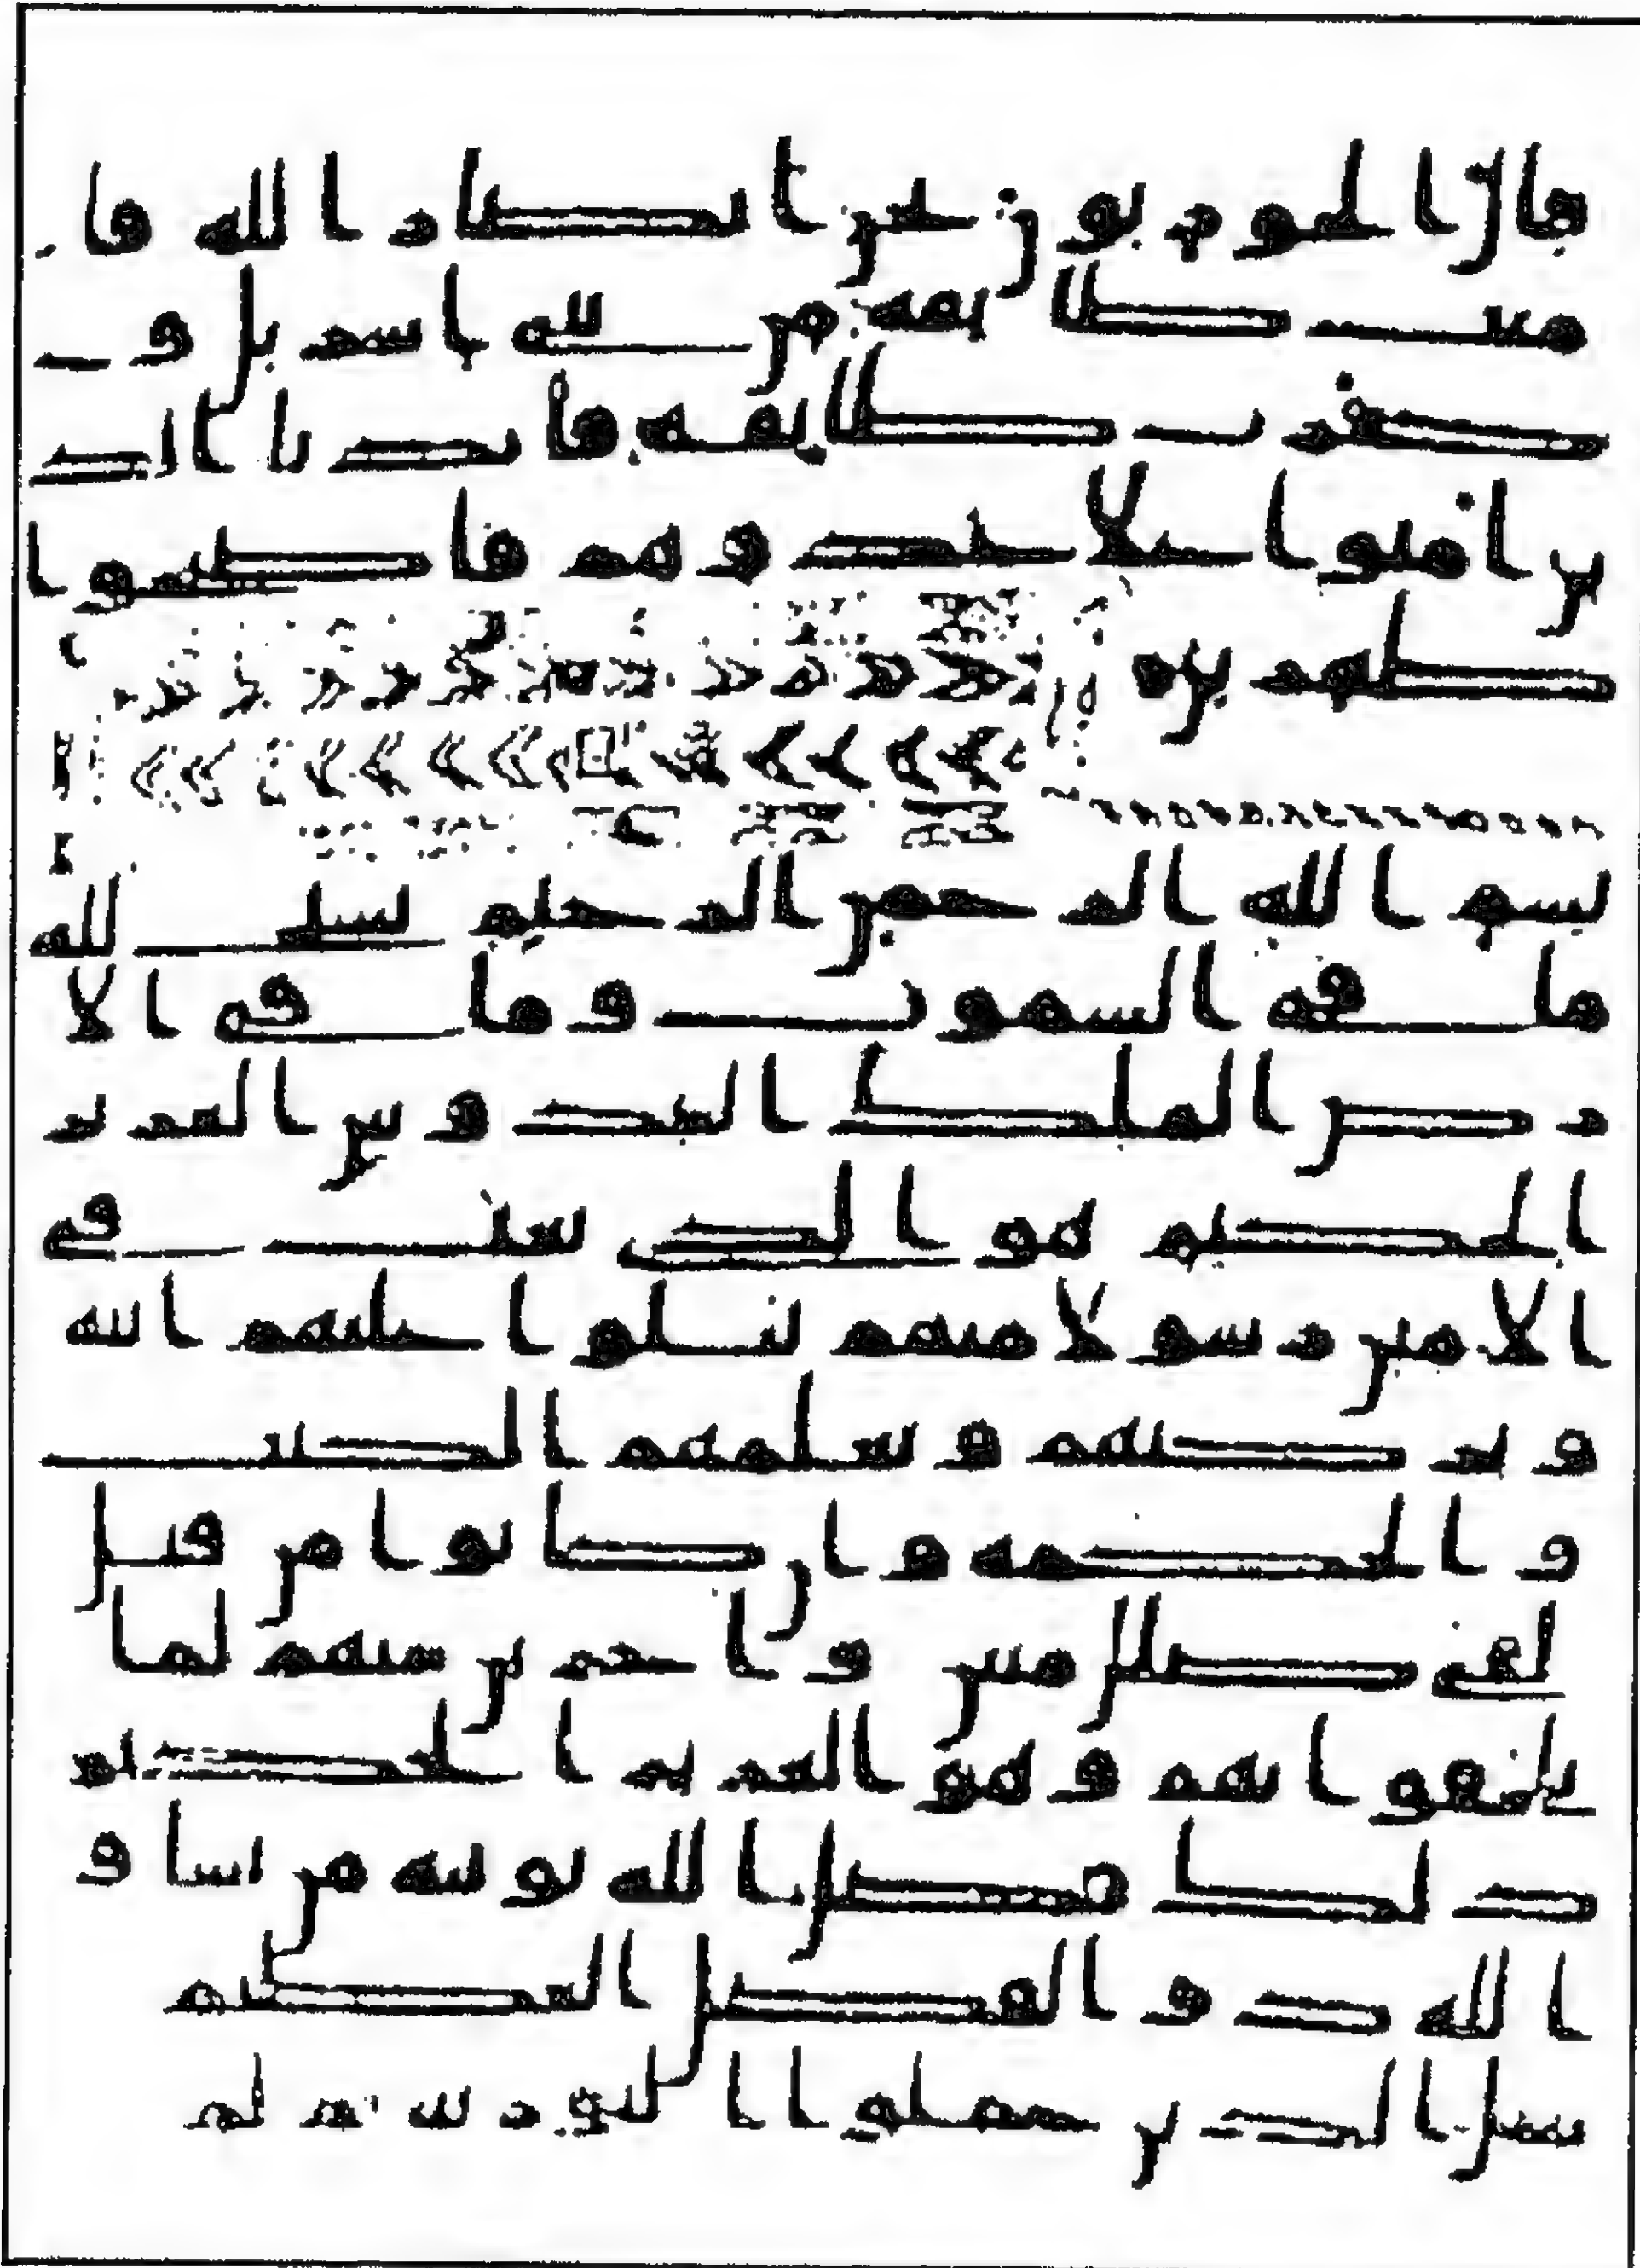 قال الحواريون نحن انصار الله فا
منت طائفة من بني اسريل و
كفرت طائفة فايدنا الذ
ين امنوا على عدوهم فاصبحوا
ظهرين
بسم الله الرحمن الرحيم يسبح لله
ما في السموت وما في الا
رض الملك القدوس العزيز
الحكيم هو الذي بعث في
الامين رسولا منهم يتلوا عليهم ايته
ويزكيهم ويعلمهم الكتب
والحكمة وان كانوا من قبل
لفي ضلل مبين واخرين منهم لما
يلحقوا بهم وهو العزيز الحكيم
ذلك فضل الله يوتيه من يشا و
الله ذو الفضل العظيم
مثل الذين حملوا التورية ثم لم